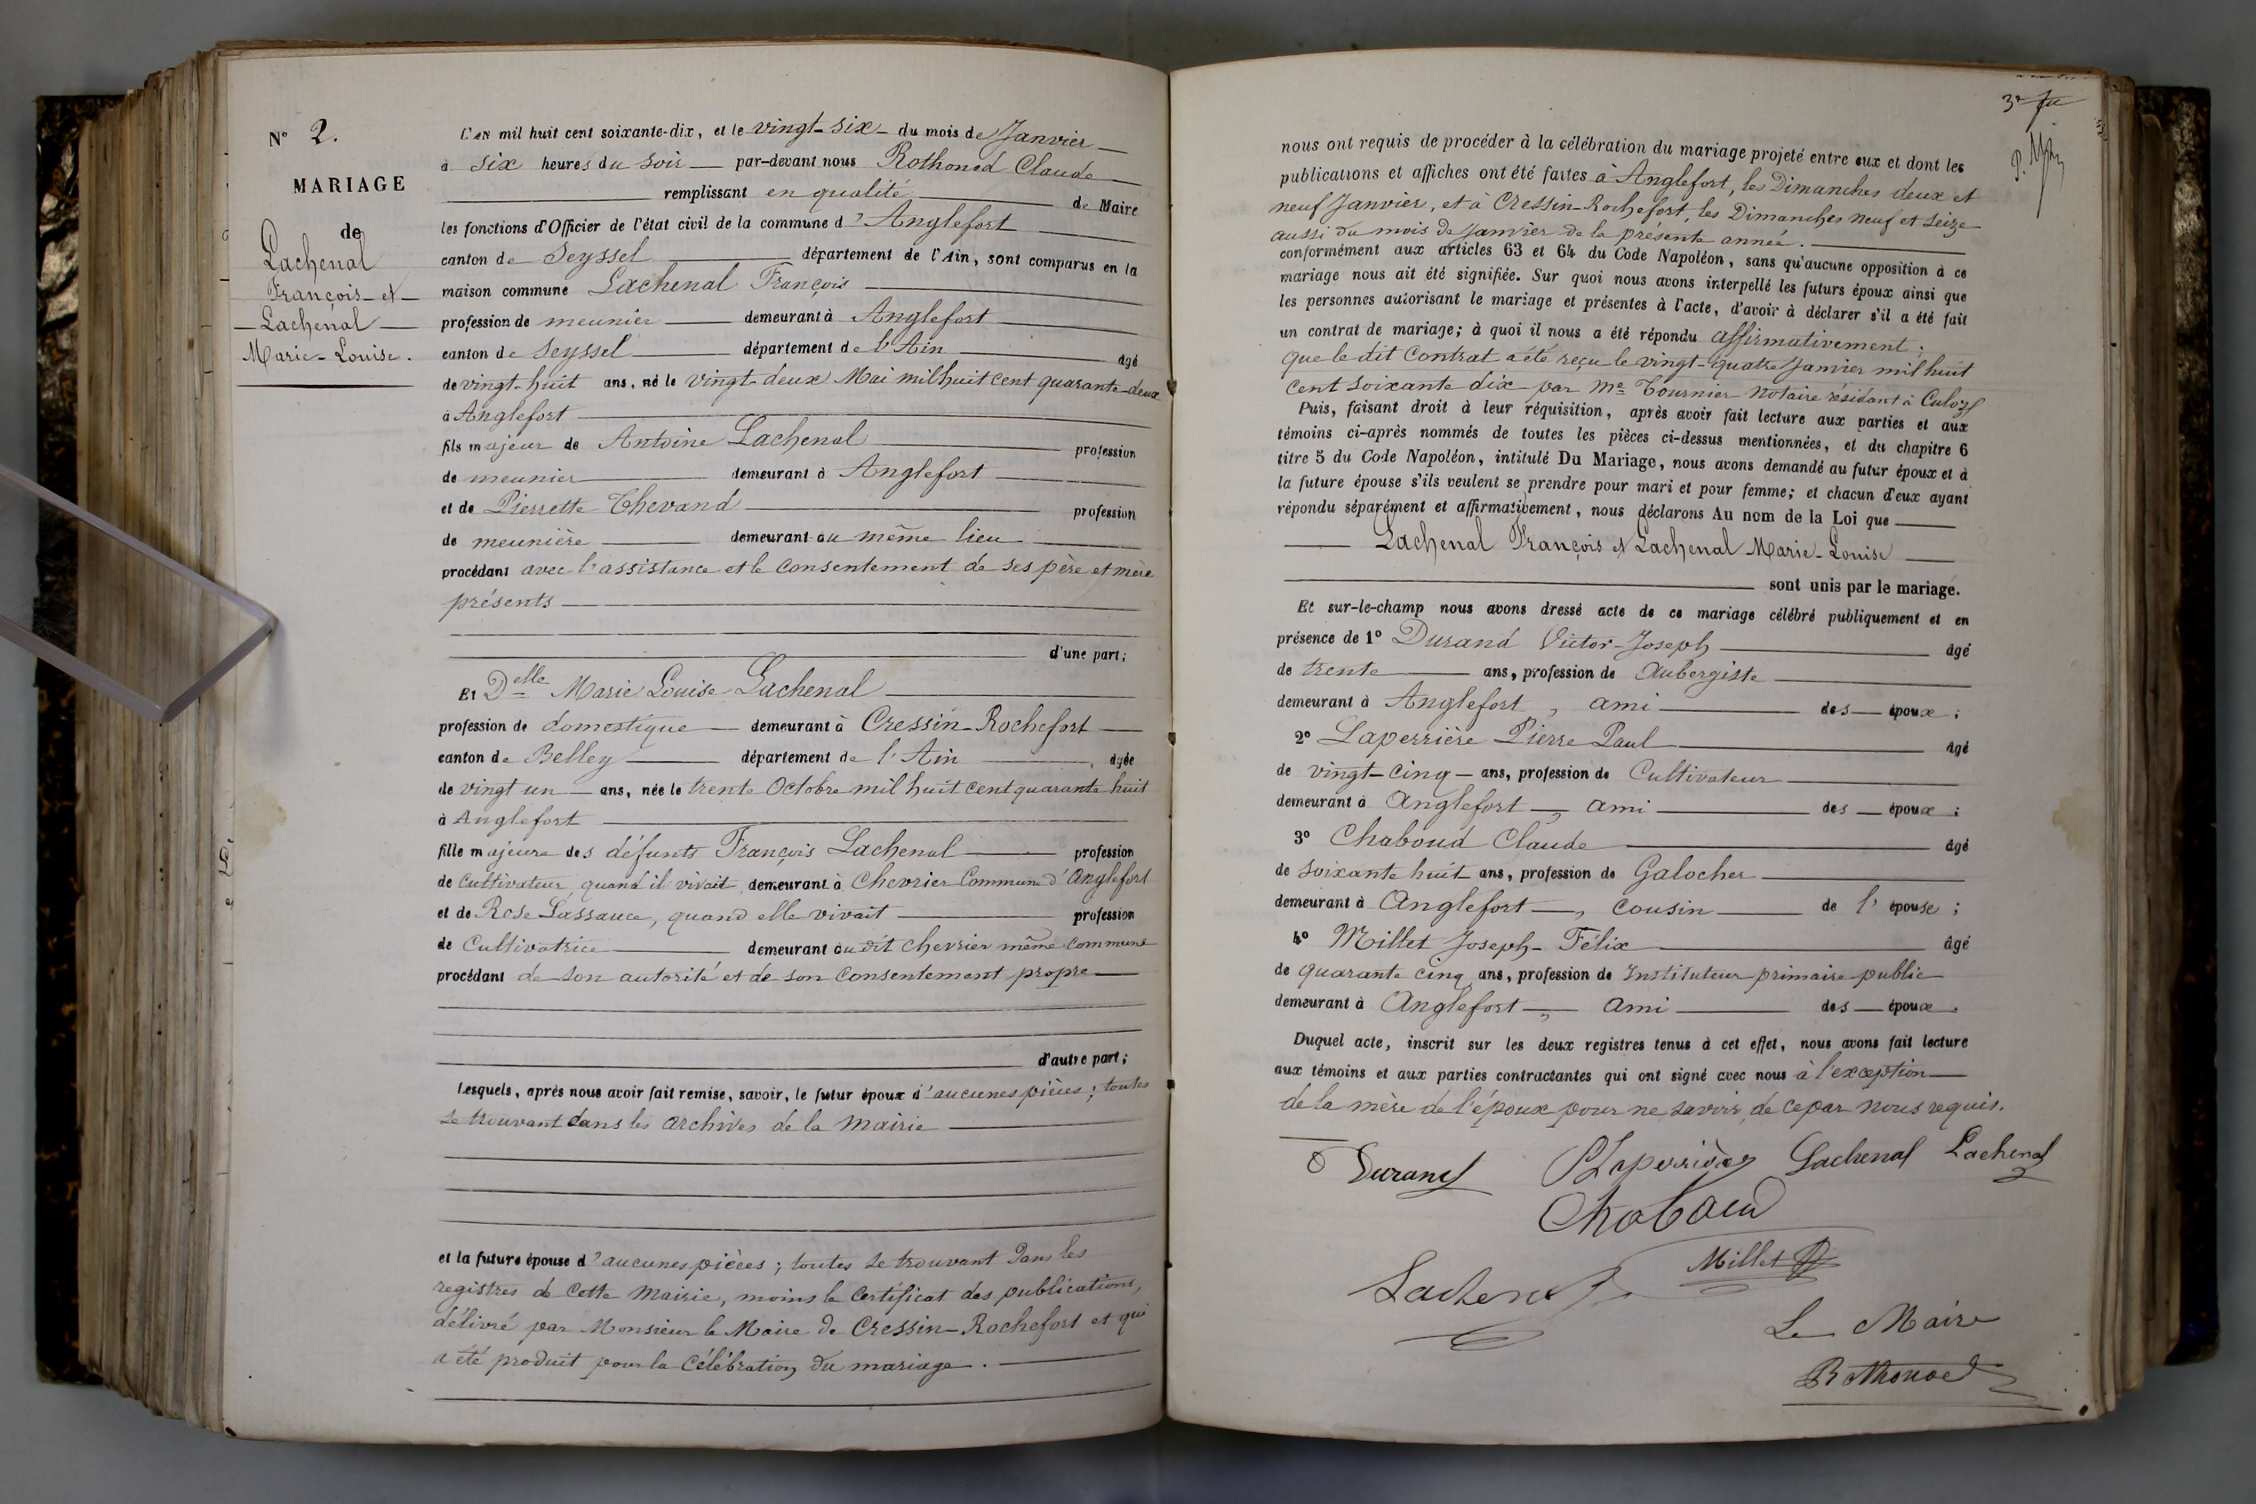 N° 2.
MARIAGE
de
Lachenal
François et
Lachenal
Marie-Louise.
L'an mil huit cent soixante-dix, et le vingt-six du mois de Janvier
à six heures du soir par-devant nous Rothonod Claude
remplissant en qualité de Maire
les fonctions d'Officier de l'état civil de la commune d'Anglefort
canton de Seyssel département de l'Ain, sont comparus en la
maison commune Lachenal François
profession de meunier demeurant à Anglefort
canton de Seyssel département de l'Ain âgé
de vingt-huit ans, né le vingt-deux Mai mil huit cent quarante-deux
à Anglefort
fils majeur de Antoine Lachenal profession
de meunier demeurant à Anglefort
et de Pierrette Chevand profession
de meunière demeurant au même lieu
procédant avec l'assistance et le consentement de ses père et mère
présents
d'une part;
Et Delle Marie Louise Lachenal
profession de domestique demeurant à Cressin-Rochefort
canton de Belley département de l'Ain, âgée
de vingt un ans, née le trente Octobre mil huit cent quarante huit
à Anglefort
fille majeure des défunts François Lachenal profession
de Cultivateur, quand il vivait, demeurant à Chevrier Commune d'Anglefort
et de Rose Lassauce, quand elle vivait profession
de Cultivatrice demeurant au dit Chevrier même commune
procédant de son autorité et de son consentement propre
d'autre part;
Lesquels, après nous avoir fait remise, savoir, le futur époux d'aucunes pièces; toutes
se trouvant dans les archives de la Mairie
et la future épouse d'aucunes pièces; toutes se trouvant dans les
registres de cette Mairie, moins le Certificat des publications,
délivré par Monsieur le Maire de Cressin-Rochefort et qui
a été produit pour la célébration du mariage.
3e
nous ont requis de procéder à la célébration du mariage projeté entre eux et dont les
publications et affiches ont été faites à Anglefort, les Dimanches deux et
neuf Janvier, et à Cressin-Rochefort, les Dimanches neuf et seize
aussi du mois de Janvier de la présente année.
conformément aux articles 63 et 64 du Code Napoléon, sans qu'aucune opposition à ce
mariage nous ait été signifiée. Sur quoi nous avons interpellé les futurs époux ainsi que
les personnes autorisant le mariage et présentes à l'acte, d'avoir à déclarer s'il a été fait
un contrat de mariage; à quoi il nous a été répondu affirmativement;
que le dit Contrat a été reçu le vingt-quatre Janvier mil huit
cent soixante dix par Me Tournier Notaire résidant à Culoz
Puis, faisant droit à leur réquisition, après avoir fait lecture aux parties et aux
témoins ci-après nommés de toutes les pièces ci-dessus mentionnées, et du chapitre 6
titre 5 du Code Napoléon, intitulé Du Mariage, nous avons demandé au futur époux et à
la future épouse s'ils veulent se prendre pour mari et pour femme; et chacun d'eux ayant
répondu séparément et affirmativement, nous déclarons Au nom de la Loi que
Lachenal François et Lachenal Marie-Louise
sont unis par le mariage.
Et sur-le-champ nous avons dressé acte de ce mariage célébré publiquement et en
présence de 1° Durand Victor-Joseph âgé
de trente ans, profession de Aubergiste
demeurant à Anglefort, ami des époux;
2° Laperrière Pierre Paul âgé
de vingt-cinq ans, profession de Cultivateur
demeurant à Anglefort, ami des époux;
3° Chaboud Claude âgé
de soixante huit ans, profession de Galocher
demeurant à Anglefort, cousin de l'épouse;
4° Millet Joseph-Félix âgé
de quarante cinq ans, profession de Instituteur primaire public
demeurant à Anglefort, ami des époux.
Duquel acte, inscrit sur les deux registres tenus à cet effet, nous avons fait lecture
aux témoins et aux parties contractantes qui ont signé avec nous à l'exception
de la mère de l'époux pour ne savoir, de ce par nous requis.
Durand PLaperrière Lachenal Lachenal
Chaboud
Millet
Lachenal
Le Maire
Rothonod